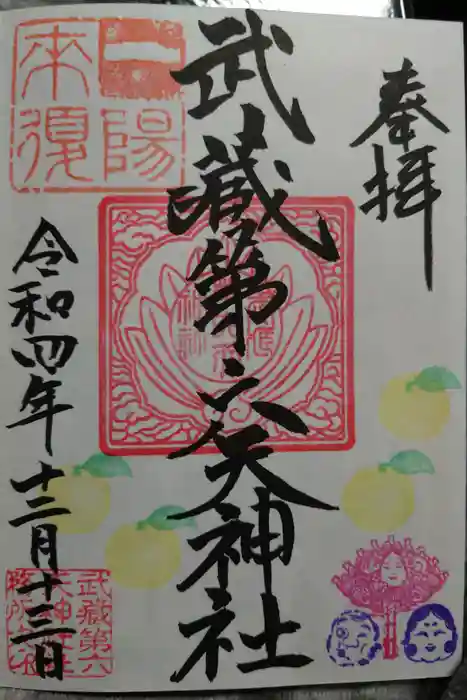 奉拝
武蔵第六天神社
令和四年十二月十三日
一陽
来復
武蔵第六
天神社